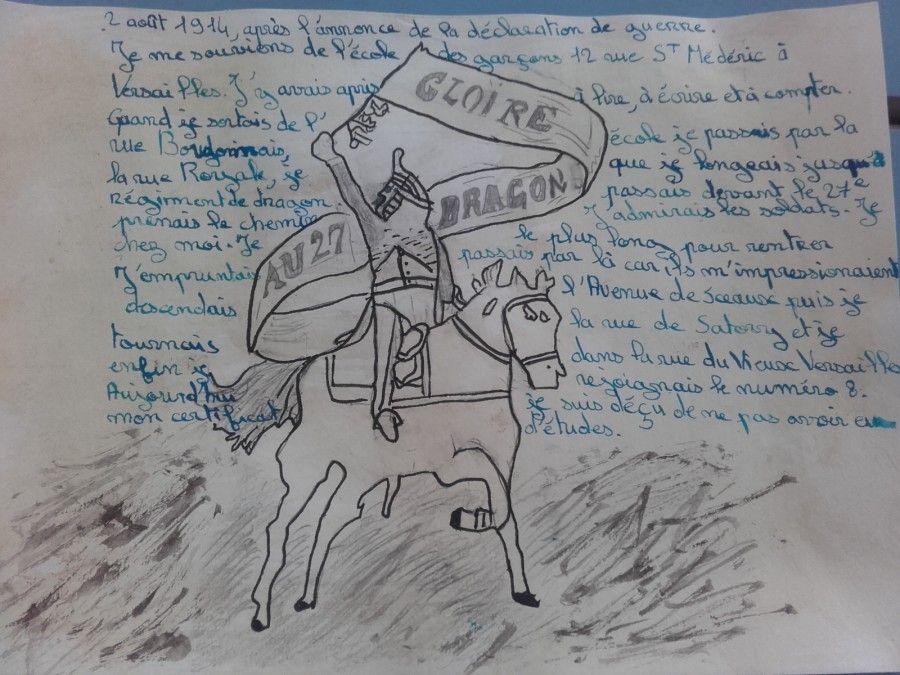 2 août 1914, après l'annonce de la déclaration de guerre.
Je me souviens de l'école des garçons 12 rue St Médéric à
Versailles. J'y avais apris à lire, à écrire et à compter.
Quand je sortais de l'école je passais par la
rue Bourdonnais, que je longeais jusqu'à
la rue Royale, je passais devant le 27e
régiment de dragon. J'admirais les soldats. Je
prenais le chemin le plus long pour rentrer
chez moi. Je passais par là car ils m'impressionaient
J'empruntais l'Avenue de Sceaux puis je
descendais la rue de Satory et je
tournais dans la rue du Vieux Versailles
enfin je rejoignais le numéro 8.
Aujourd'hui je suis déçu de ne pas avoir eu
mon certificat d'études.
GLOIRE
AU 27
DRAGONS